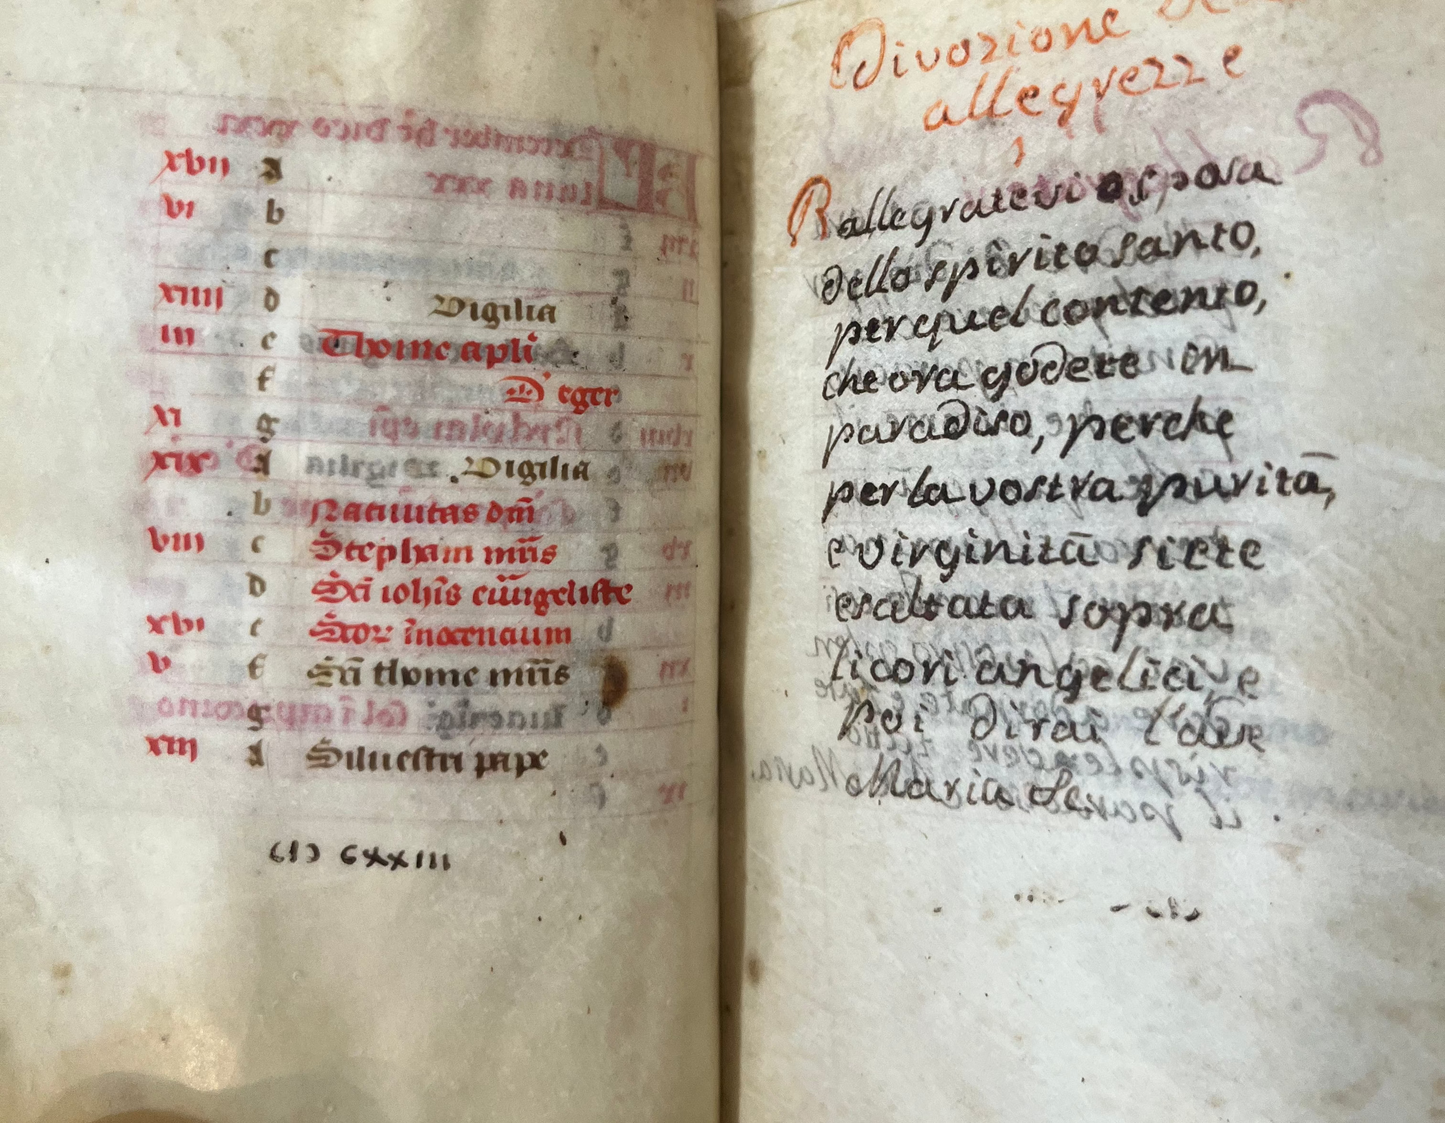 xvii a
vi b
c
xiiii d Vigilia
iii e Thome apli
f D' eger
xi g
xix A Vigilia
b Natiuitas dm̄
viii c Stephani mr̄is
d Sc̄i ioh̄is eu̅ugeliste
xvi e Sc̄or Inocencium
v f Sc̄i thome mr̄is
g
xiii A Siluestri pape
(I) CXXIII
Divozione
allegrezze
Rallegratevi o sposa
dello spirito santo,
per quel contento,
che ora godete in
paradiso, perche
per la vostra purità,
e virginità siete
esaltata sopra
li cori angelici, e
poi dirai l'Ave
Maria